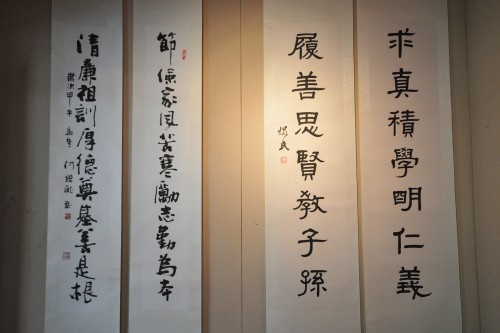 求真積學明仁義
履善思賢教子孫
節儉家風苦寒勵志勤為本
清廉祖訓厚德奠基善是根